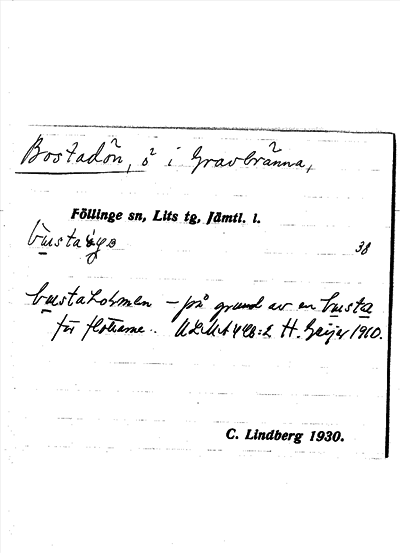 Bostadön, ö i Gravbränna,
Föllinge sn, Lits tg, Jämtl. l.
38
bustaholmen - på grund av en busta
för flottarne.. H. Geijer 1910.
C. Lindberg 1930.